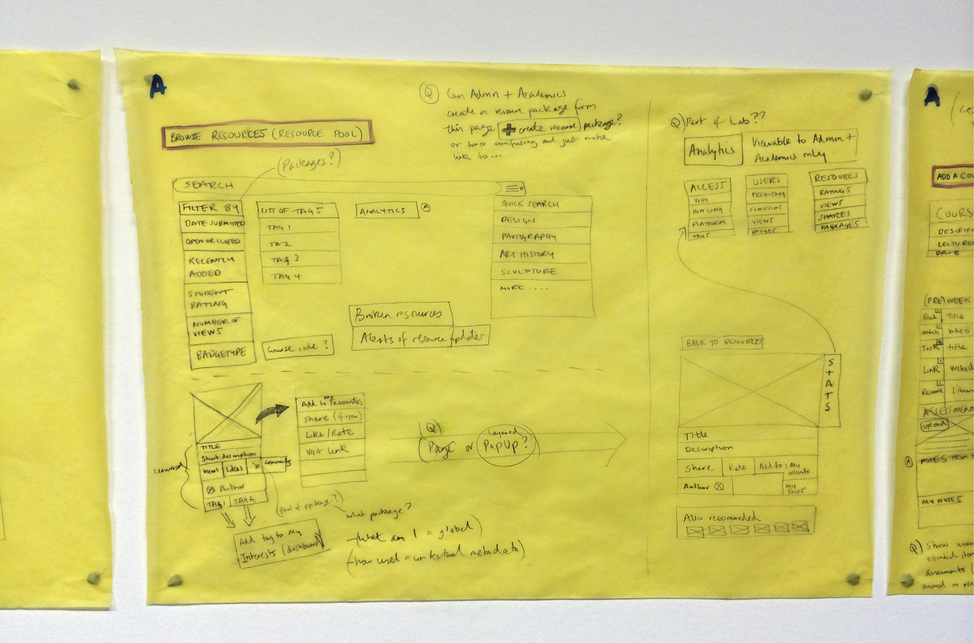 A
BROWSE RESOURCES (RESOURCE POOL)
(Packages?)
Q Can Admin + Academics
create a resource package from
this page + create resource package?
or too confusing and just make
like to...
SEARCH
FILTER BY
DATE SUBMITTED
OPEN OR CLOSED
RECENTLY
ADDED
STUDENT
RATING
NUMBER OF
VIEWS
BADGETYPE
LIST OF TAGS
TAG 1
TAG 2
TAG 3
TAG 4
Course code?
ANALYTICS A
Broken resources
Alerts of resource updates
QUICK SEARCH
DESIGN
PHOTOGRAPHY
ART HISTORY
SCULPTURE
MORE ....
TITLE
Short description
Views Likes Comments
Author
TAG 1 TAG 2
Add tag to My
Interests (dashboard)
Add to My Favourites
Share (if open)
Like/Rate
Visit Link
(Part of package?)
what package?
- What am I = global)
(- how used = contextual metadata)
Q
Page or Layered PopUp?
Q) Part of Lab??
Analytics
Viewable to Admin +
Academics only
ACCESS
WHO
HOW LONG
PLATFORM
TAGS
USERS
VIEWS
RESOURCES
RATINGS
VIEWS
SHARES
PACKAGES
BACK TO RESOURCES
STATS
Title
Description
Share Rate Add to: My
Author
My
Also recommended
A
ADD A COU
COURS
LECTURE
(PRE) WEEK
Title
Title
Link
ASSESSMEN
upload
NOTES FROM T
MY NOTES
Q) Show